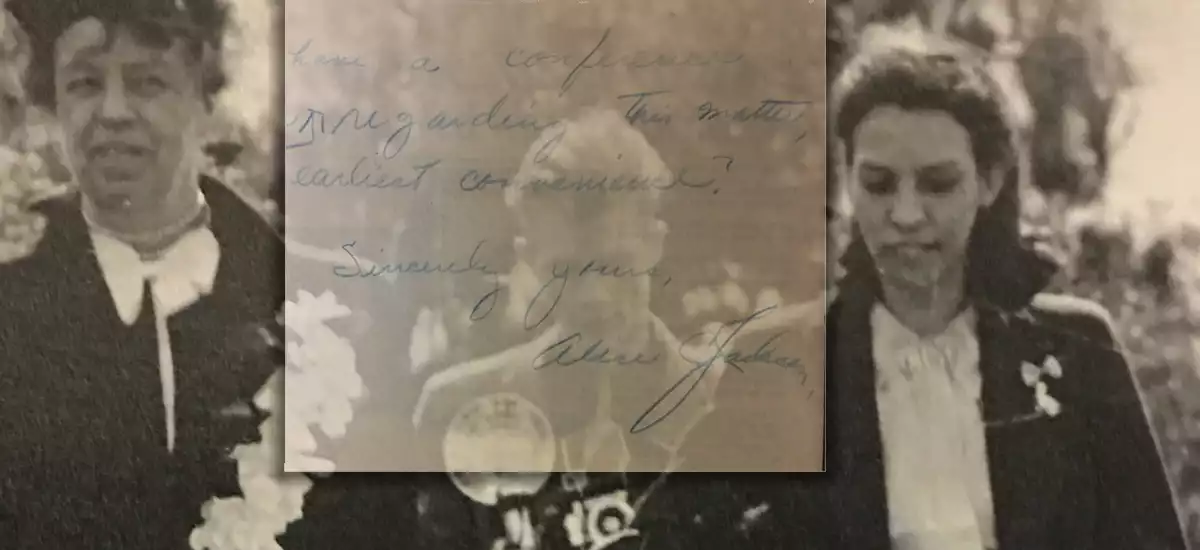 have a conference
regarding this matter,
earliest convenience?
Sincerely yours,
Alice Jackson,